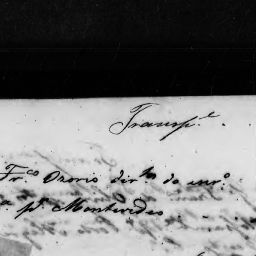 Transp.e
Fr.co Ozorio dir.to do enr.o
p.a Montevideo